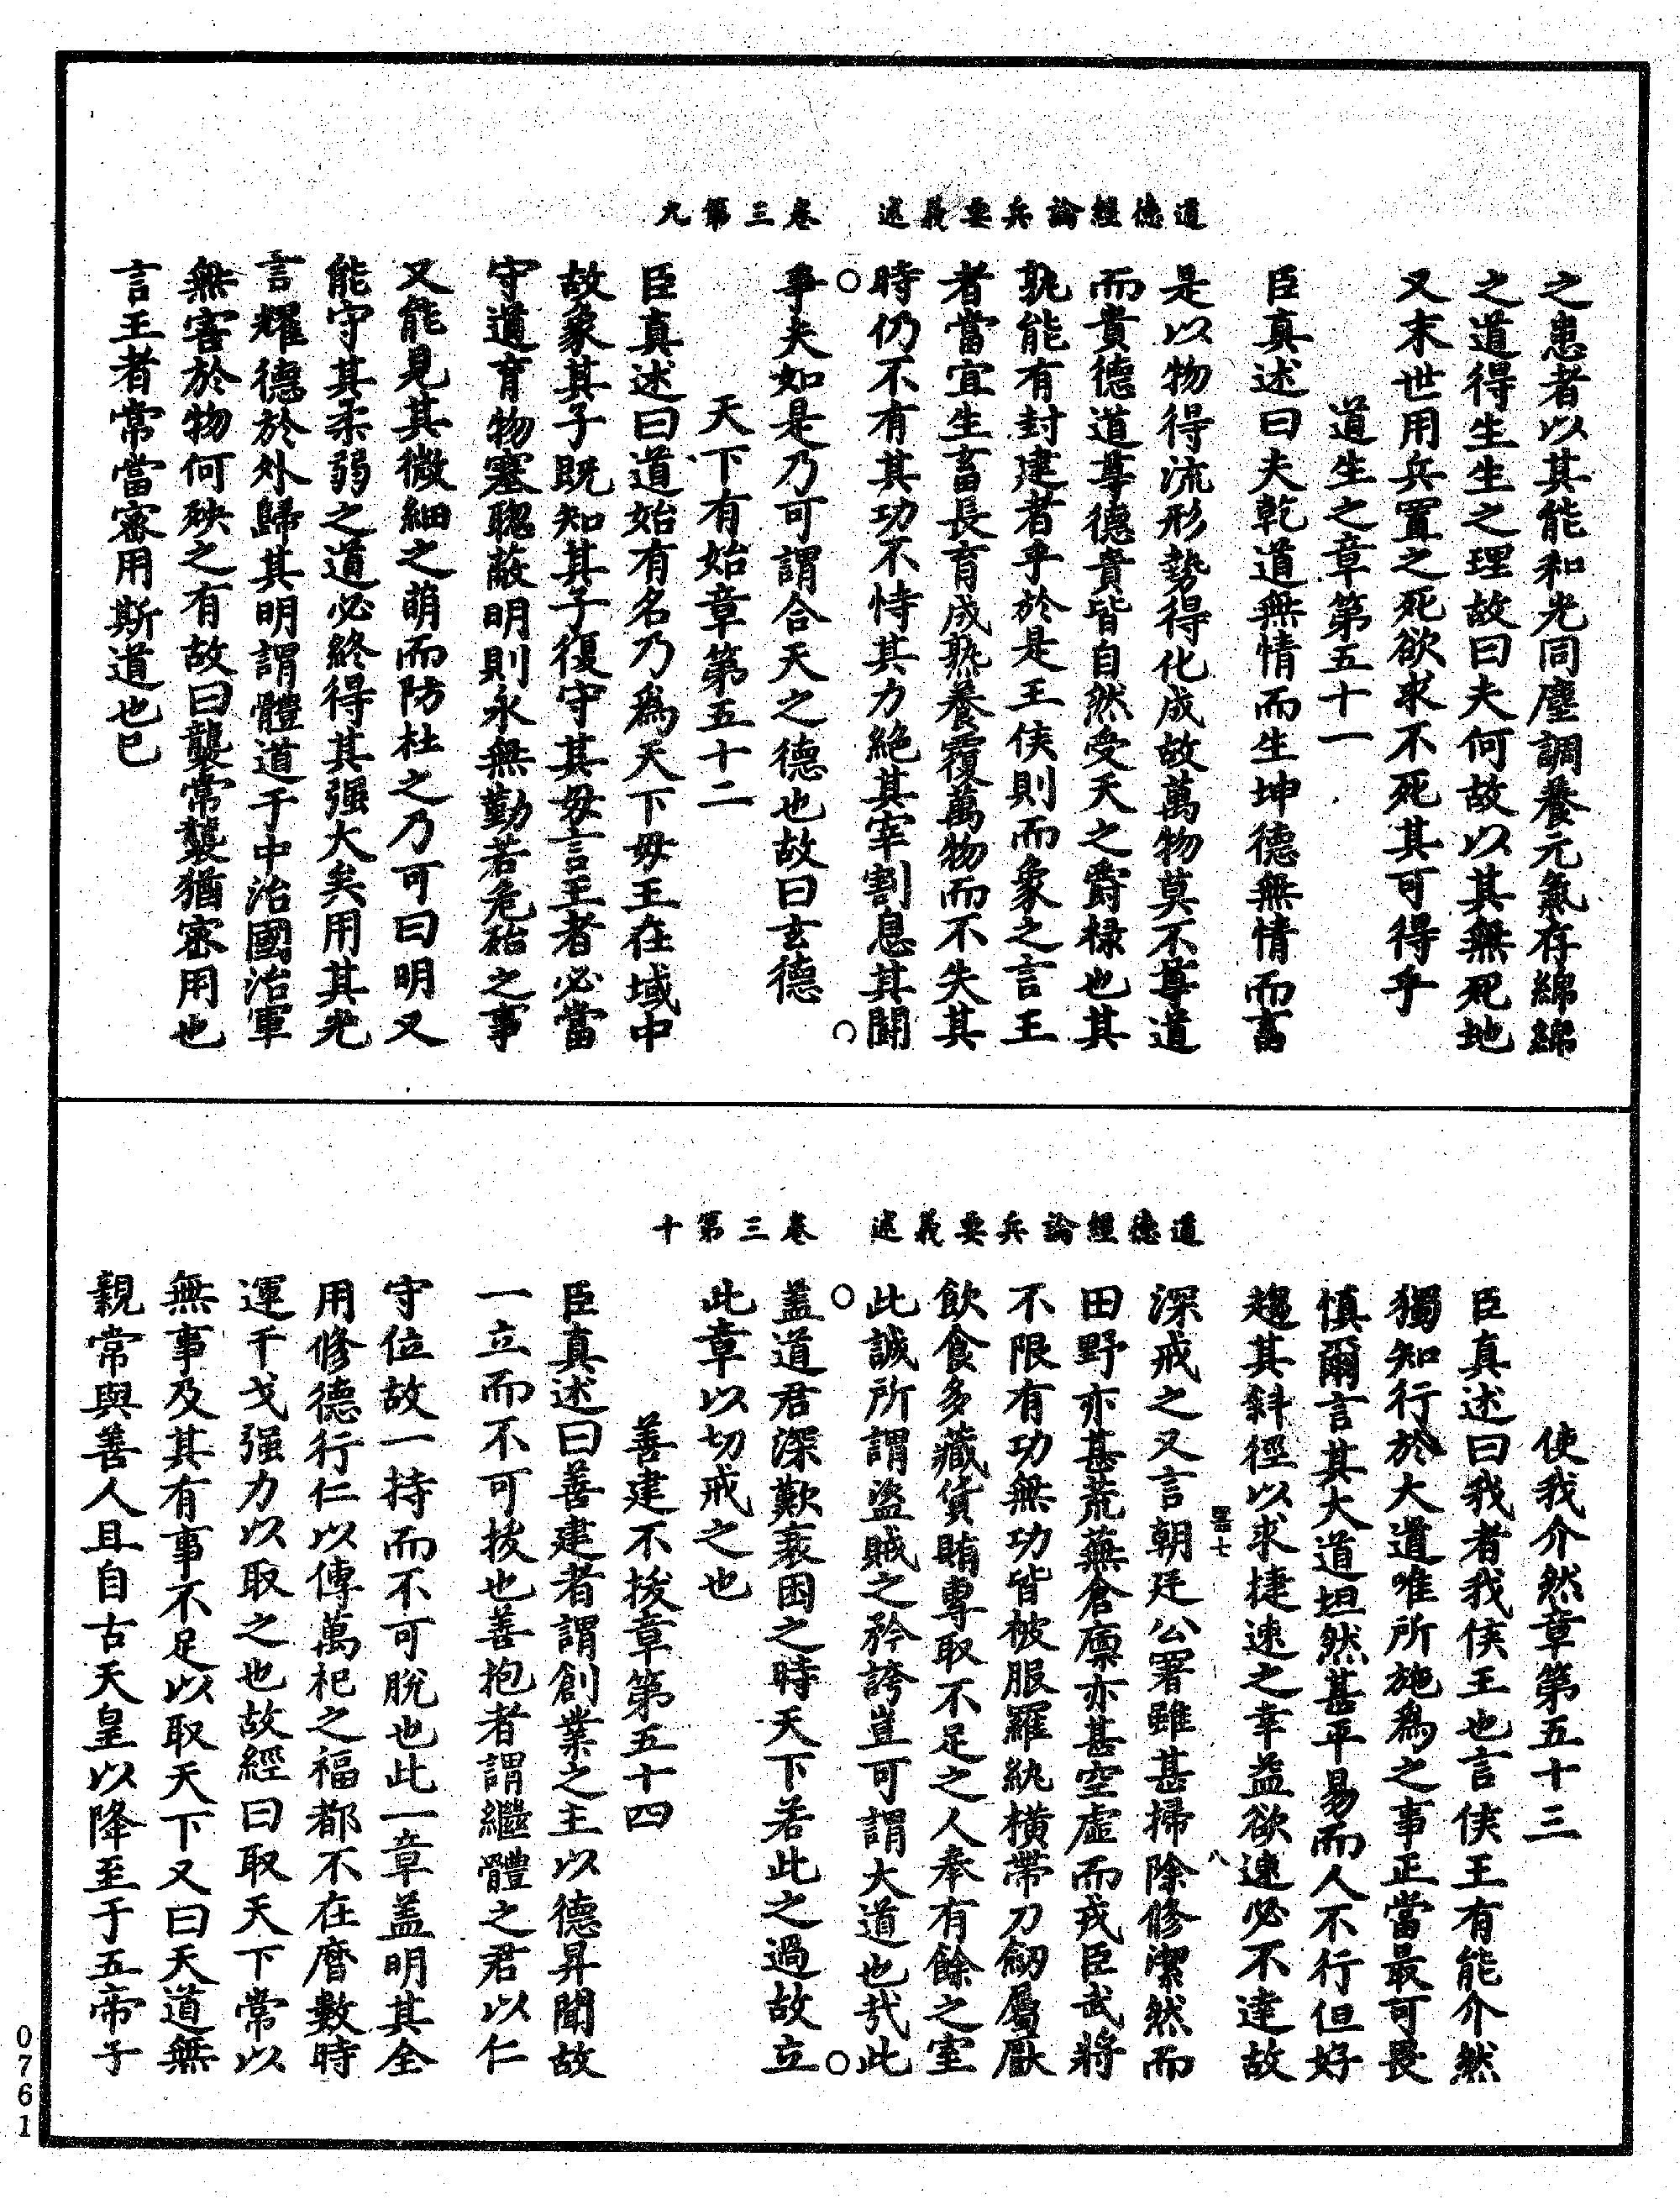 道德經論兵要義述　卷三第九
之患者以其能和光同塵調養元氣存綿綿
之道得生生之理故曰夫何故以其無死地
又末世用兵置之死欲求不死其可得乎
道生之章第五十一
臣真述曰夫乾道無情而生坤德無情而畜
是以物得流形勢得化成故萬物莫不尊道
而貴德道尊德貴皆自然受天之爵祿也其
孰能有封建者乎於是王侯則而象之言王
者當宜生畜長育成熟養覆萬物而不失其
時仍不有其功不恃其力絕其宰割息其聞
事夫如是乃可謂合天之德也故曰玄德
天下有始章第五十二
臣真述曰道始有名乃爲天下母王在域中
故象其子既知其子復守其母言王者必當
守道育物塞聰蔽明則永無勤若危殆之事
又能見其微細之萌而防杜之乃可曰明又
能守其柔弱之道必終得其强大矣用其光
言耀德於外歸其明謂體道于中治國治軍
無害於物何殃之有故曰襲常襲猶密用也
言王者常當密用斯道也已
道德經論兵要義述　卷三第十
使我介然章第五十三
臣真述曰我者我侯王也言侯王有能介然
獨知行於大道唯所施爲之事正當最可畏
慎爾言其大道坦然甚平易而人不行但好
趨其斜徑以求捷速之幸益欲速必不達故
深戒之又言朝廷公署雖甚掃除修潔然而
田野亦甚荒蕪倉廩亦甚空虛而戎臣武將
不限有功無功皆被服羅紈橫帶刀劒屬厭
飲食多藏貨賄專取不足之人奉有餘之室
此誠所謂盜賊之矜誇豈可謂大道也哉此
蓋道君深歎衰困之時天下若此之過故立
此章以切戒之也
善建不拔章第五十四
臣真述曰善建者謂創業之主以德昇聞故
一立而不可拔也善抱者謂繼體之君以仁
守位故一持而不可脫也此一章蓋明其全
用修德行仁以傳萬祀之福都不在曆數時
運干戈强力以取之也故經曰取天下常以
無事及其有事不足以取天下又曰天道無
親常與善人且自古天皇以降至于五帝子
七
八
0761